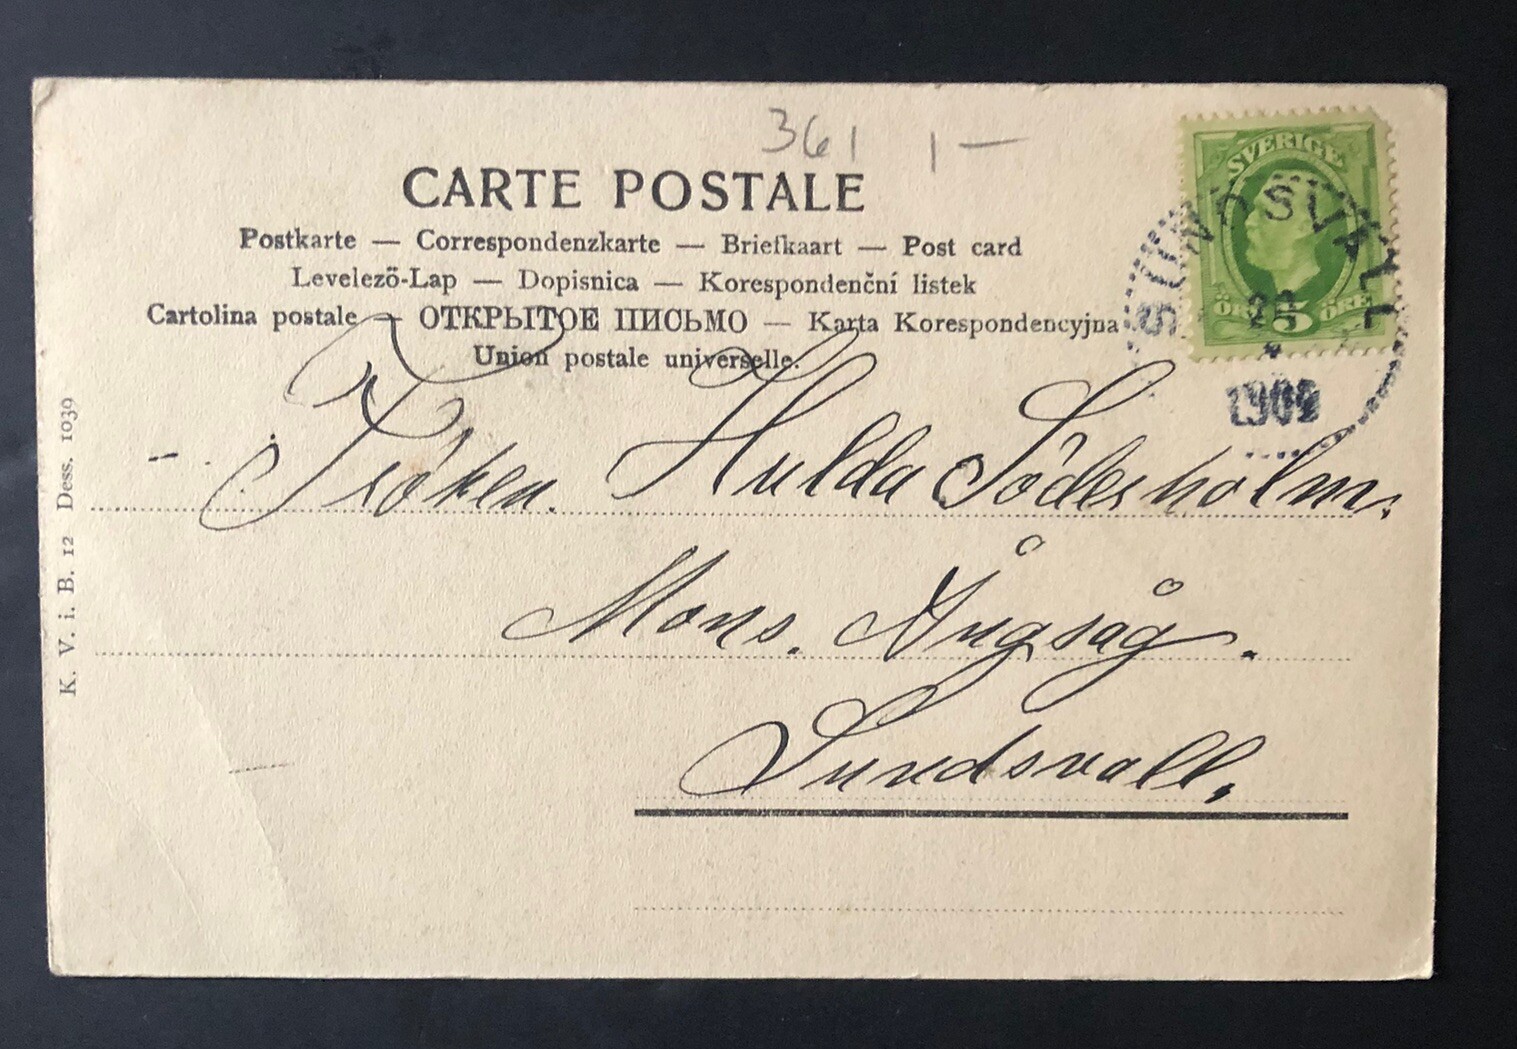 361 1 —
CARTE POSTALE
Postkarte — Correspondenzkarte — Briefkaart — Post card
Levelező-Lap — Dopisnica — Korespondenční listek
Cartolina postale — ОТКРЫТОЕ ПИСЬМО — Karta Korespondencyjna
Union postale universelle.
SVERIGE
ÖRE 5 ÖRE
SUNDSVALL
1909
Fröken. Hulda Söderholm.
Mons. Ångsåg.
Sundsvall.
K. V. i. B. 12 Dess. 1039